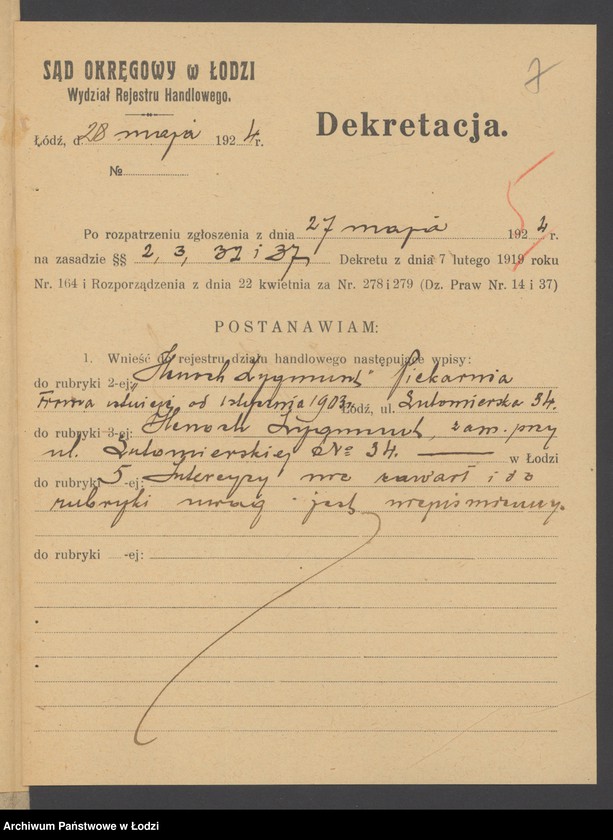 SĄD OKRĘGOWY w ŁODZI
Wydział Rejestru Handlowego.
7
Dekretacja.
Łódź, d. 28 maja 1924 r.
№
Po rozpatrzeniu zgłoszenia z dnia 27 maja 1924 r.
na zasadzie §§ 2, 3, 32 i 37 Dekretu z dnia 7 lutego 1919 roku
Nr. 164 i Rozporządzenia z dnia 22 kwietnia za Nr. 278 i 279 (Dz. Praw Nr. 14 i 37)
POSTANAWIAM:
1. Wnieść do rejestru działu handlowego następujące wpisy:
do rubryki 2-ej: „Henoch Zygmunt” Piekarnia
Firma istnieje od 1 stycznia 1903 r. Łódź, ul. Lutomierska 34.
do rubryki 3-ej: Henoch Zygmunt, zam. przy
ul. Lutomierskiej № 34. w Łodzi
do rubryki 5-ej: Intercyzy nie zawarł i do
rubryki uwag - jest niepiśmienny.
do rubryki -ej:
Archiwum Państwowe w Łodzi